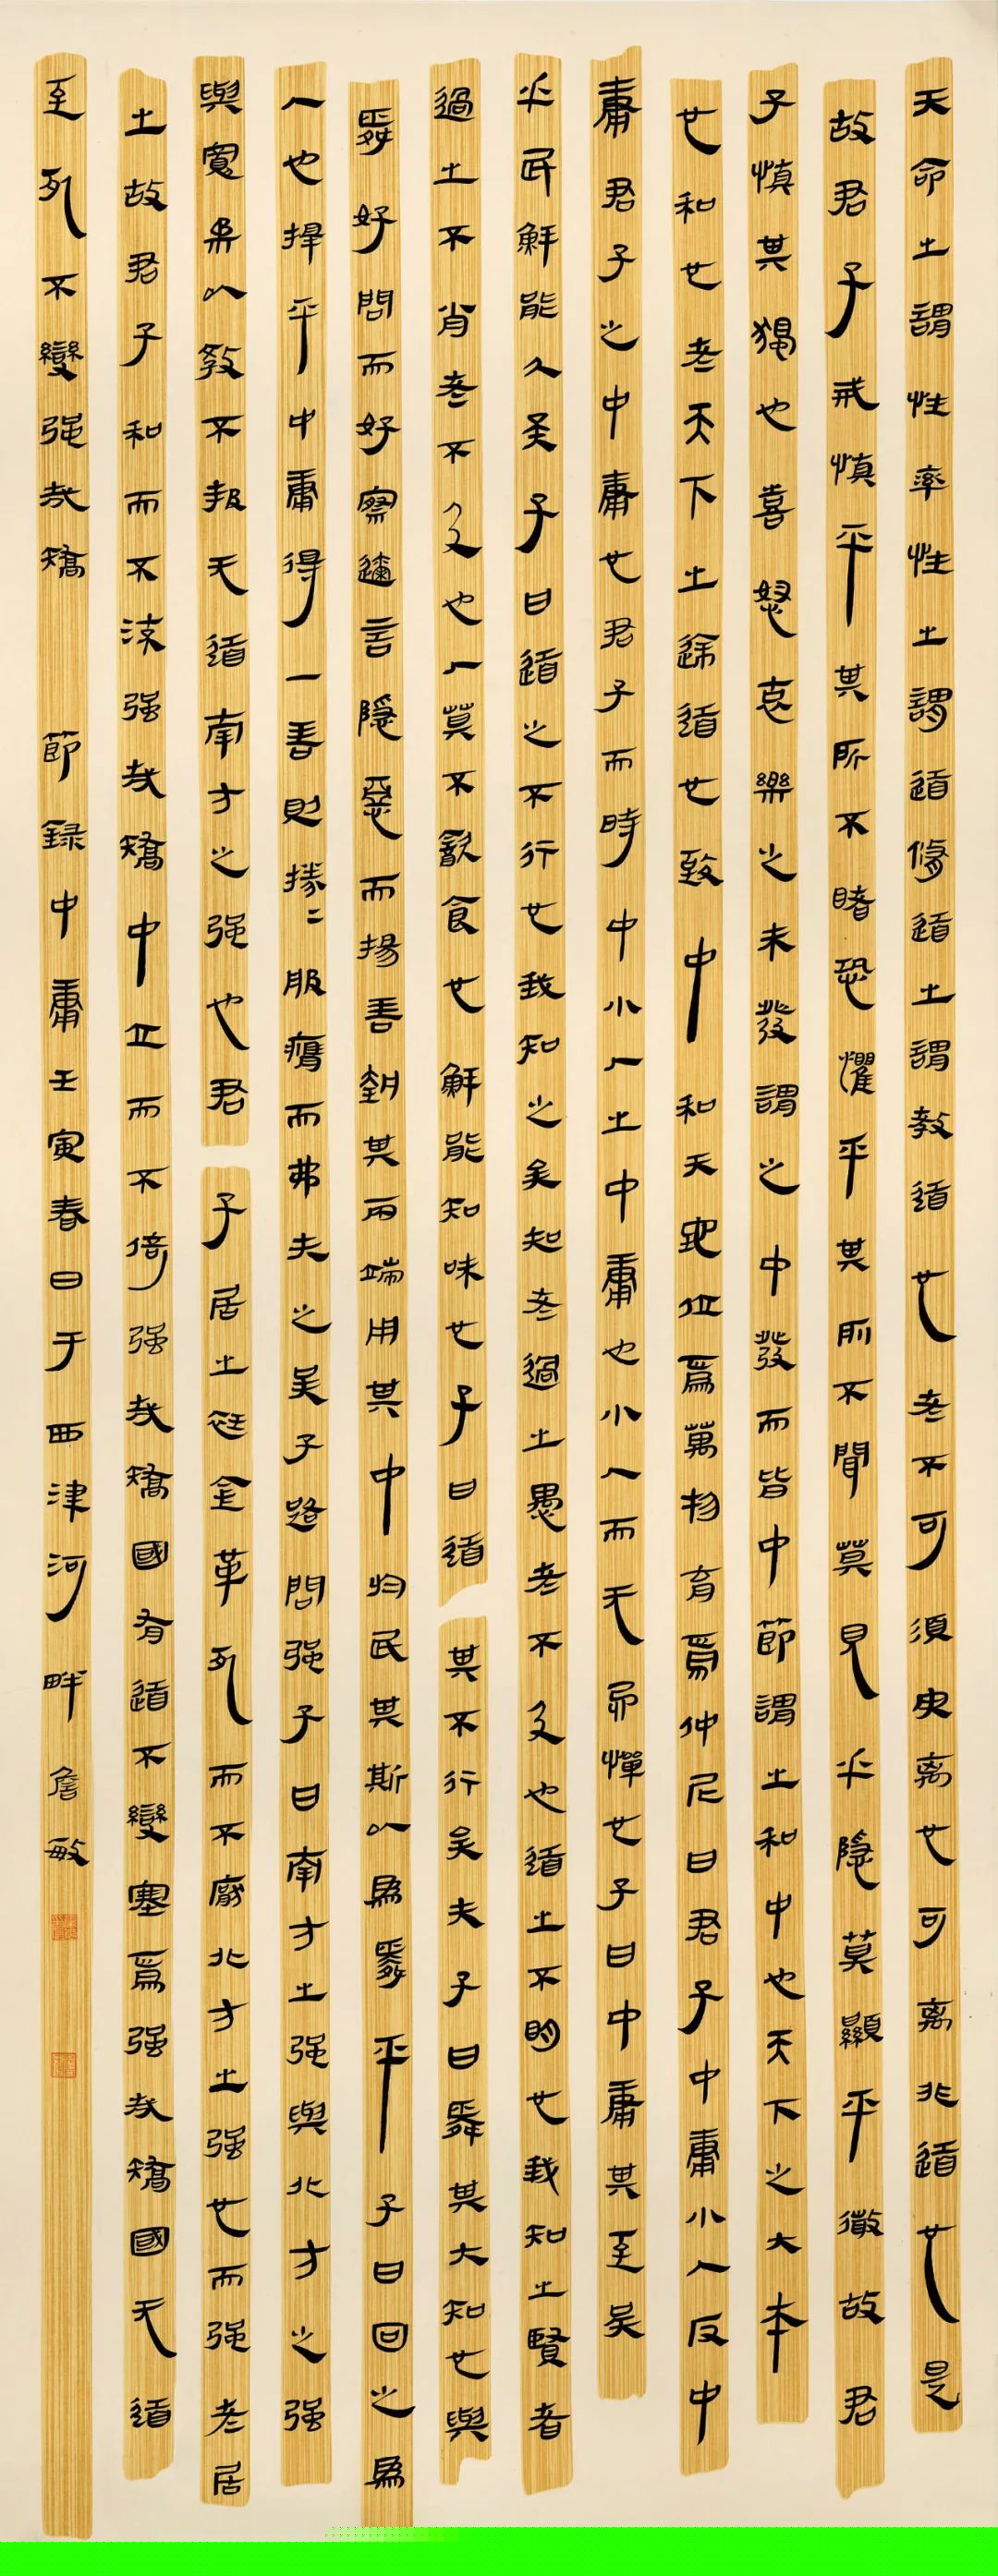 天命之謂性率性之謂道脩道之謂教道也者不可須臾离也可离非道也是
故君子戒慎乎其所不睹恐懼乎其所不聞莫見乎隱莫顯乎微故君
子慎其獨也喜怒哀樂之未發謂之中發而皆中節謂之和中也天下之大本
也和也者天下之達道也致中和天地位焉萬物育焉仲尼曰君子中庸小人反中
庸君子之中庸也君子而時中小人之中庸也小人而无忌憚也子曰中庸其至矣
乎民鮮能久矣子曰道之不行也我知之矣知者過之愚者不及也道之不明也我知之賢者
過之不肖者不及也人莫不飲食也鮮能知味也子曰道其不行矣夫子曰舜其大知也與
舜好問而好察邇言隱惡而揚善執其兩端用其中於民其斯以為舜乎子曰回之為
人也擇乎中庸得一善則拳〻服膺而弗失之矣子路問强子曰南方之强與北方之强
與寬柔以教不報无道南方之强也君子居之衽金革死而不廢北方之强也而强者居
之故君子和而不流强哉矯中立而不倚强哉矯國有道不變塞焉强哉矯國无道
至死不變强哉矯 節錄中庸壬寅春日于西津河畔 詹敏